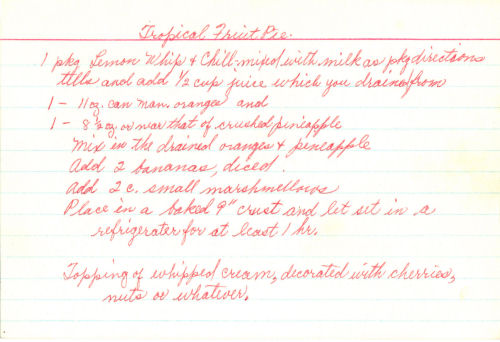 Tropical Fruit Pie.
1 pkg Lemon Whip & Chill - mixed with milk as pkg directions
tells and add 1/2 cup juice which you drained from
1 - 11 oz. can man. oranges and
1 - 8 1/2 oz. or near that of crushed pineapple
Mix in the drained oranges & pineapple
Add 2 bananas, diced.
Add 2 c. small marshmellows
Place in a baked 9" crust and let set in a
refrigerater for at least 1 hr.
Topping of whipped cream, decorated with cherries,
nuts or whatever.